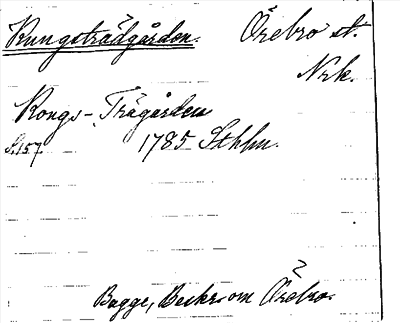 Kungsträdgården. Örebro st.
Nrk.
Kongs-Trägården
S.157. 1785 Sthlm.
Bagge, Beskr. om Örebro.